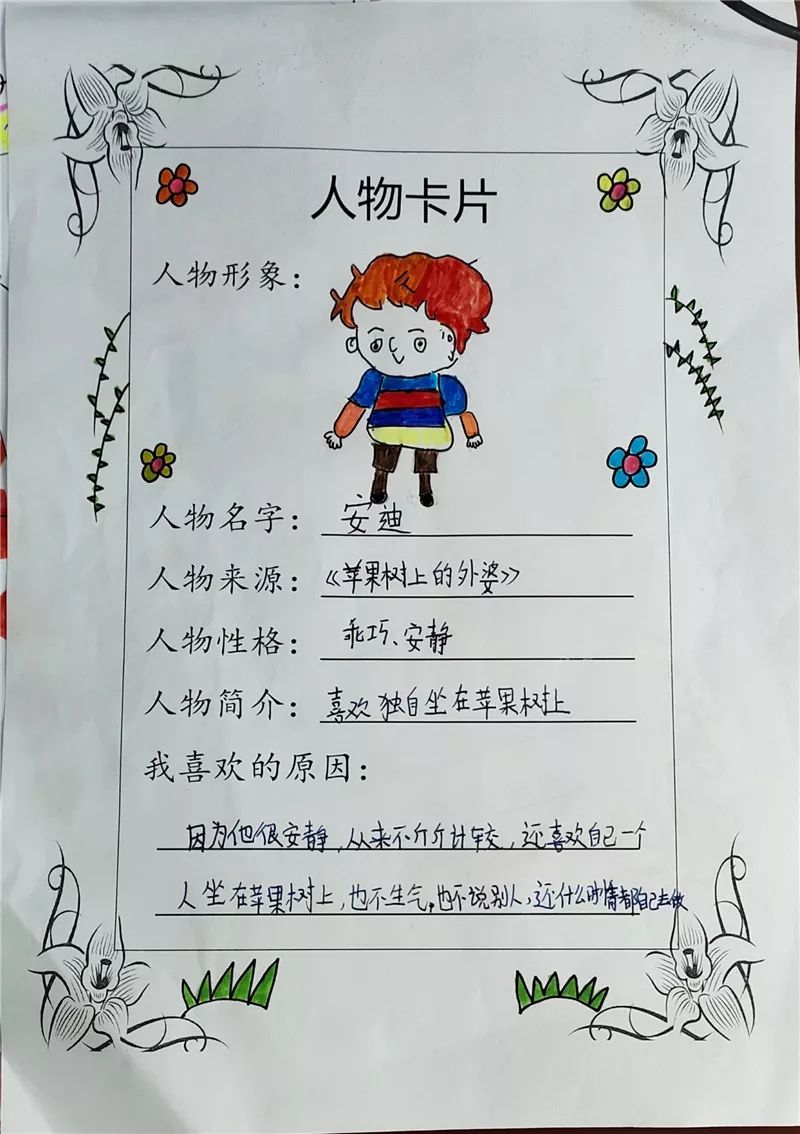 人物卡片
人物形象：
人物名字：安迪
人物来源：《苹果树上的外婆》
人物性格：乖巧、安静
人物简介：喜欢独自坐在苹果树上
我喜欢的原因：
因为他很安静，从来不斤斤计较，还喜欢自己一个
人坐在苹果树上，也不生气，也不说别人，还什么事情都自己去做